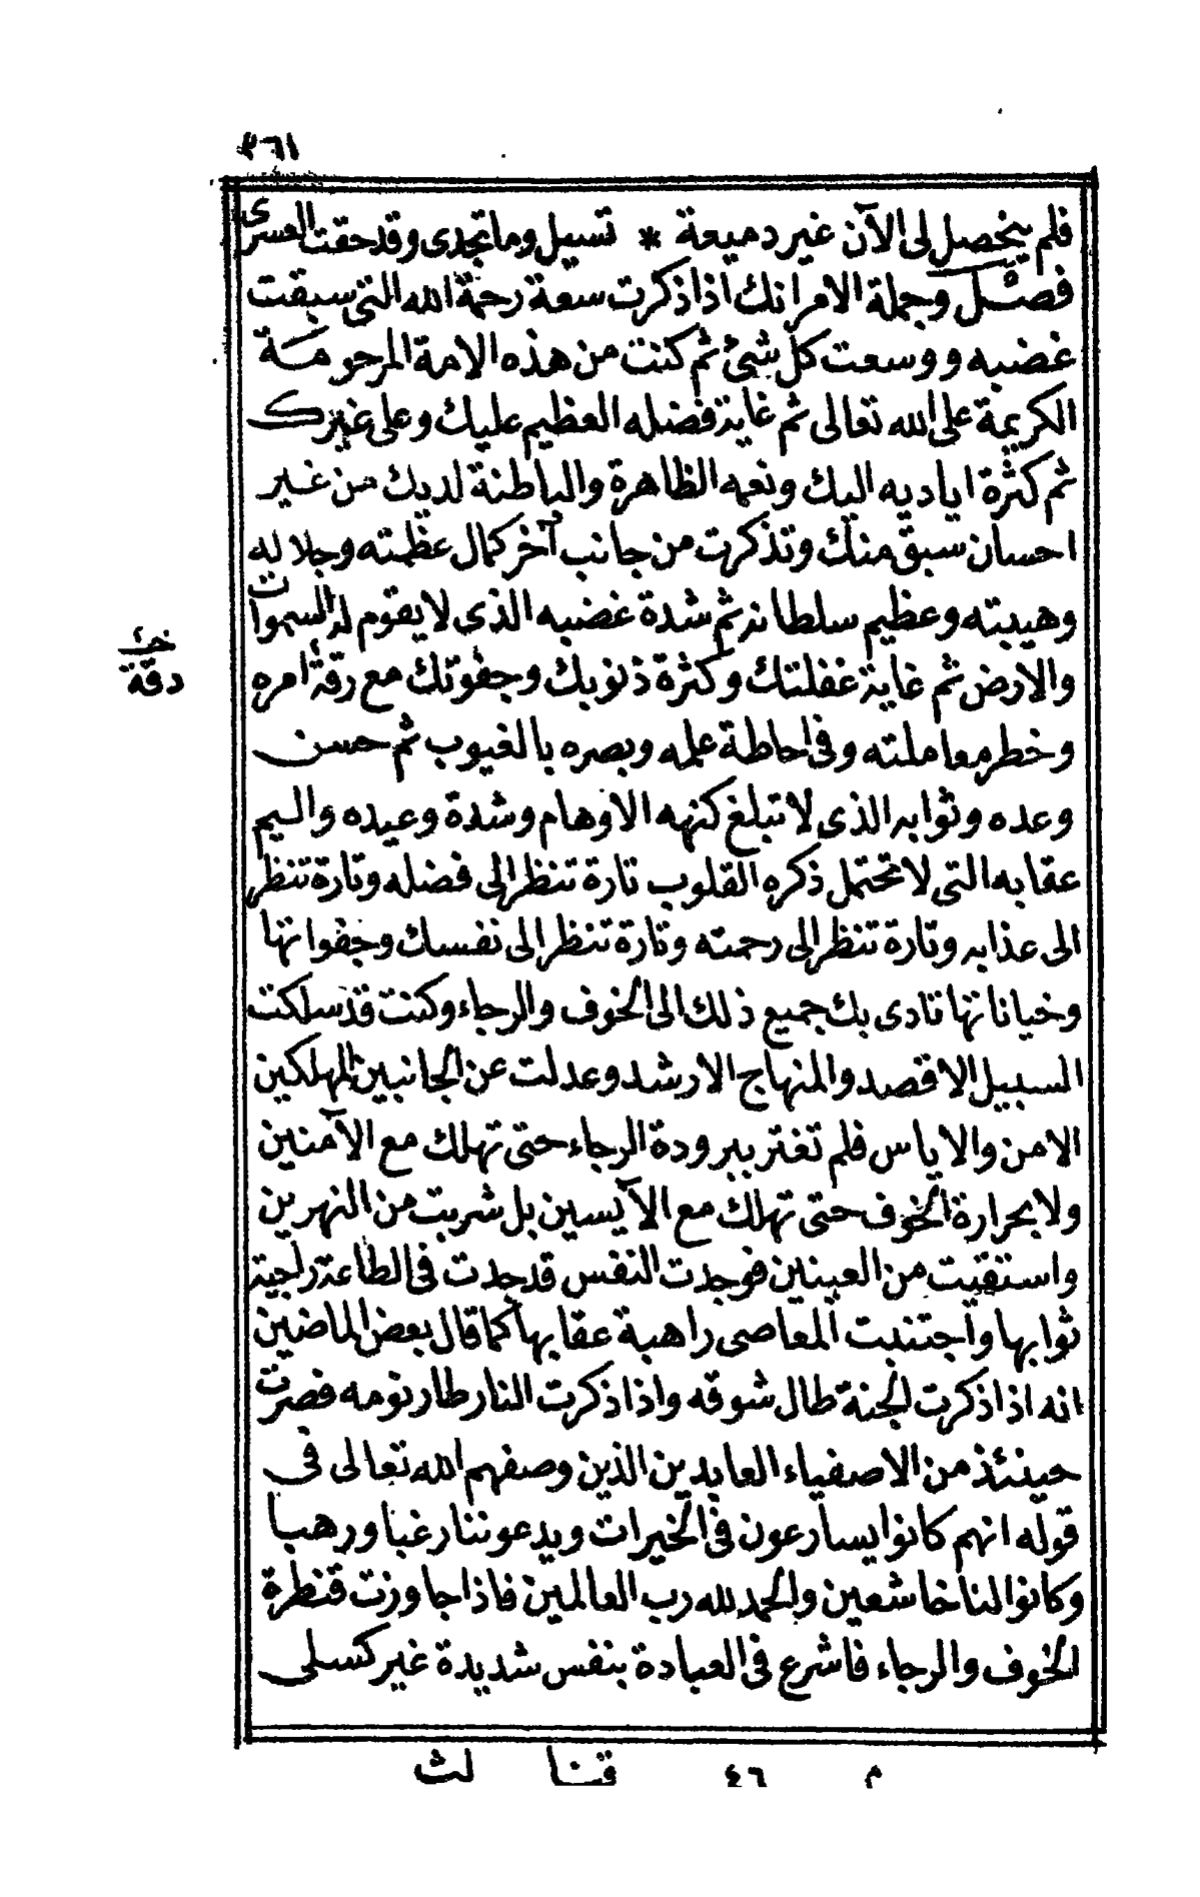 ٢٦١
فلم يتحصل لى الآن غير دميعة * تسيل وما تجدى وقد حقت العسرى
فصل وجملة الامر انك اذا ذكرت سعة رحمة الله التى سبقت
غضبه ووسعت كل شئ ثم كنت من هذه الامة المرحومة
الكريمة على الله تعالى ثم غاية فضله العظيم عليك وعلى غيرك
ثم كثرة اياديه اليك ونعمه الظاهرة والباطنة لديك من غير
احسان سبق منك وتذكرت من جانب آخر كمال عظمته وجلاله
وهيبته وعظيم سلطانه ثم شدة غضبه الذى لا يقوم له السموات
والارض ثم غاية غفلتك وكثرة ذنوبك وجفوتك مع رقة امره
دقة
وخطر معاملته وفى احاطة علمه وبصره بالغيوب ثم حسن
وعده وثوابه الذى لا تبلغ كنهه الاوهام وشدة وعيده واليم
عقابه التى لا تحتمل ذكره القلوب تارة تنظر الى فضله وتارة تنظر
الى عذابه وتارة تنظر الى رحمته وتارة تنظر الى نفسك وجفواتها
وخياناتها تادى بك جميع ذلك الى الخوف والرجاء وكنت قد سلكت
السبيل الاقصد والمنهاج الارشد وعدلت عن الجانبين المهلكين
الامن والاياس فلم تغتر ببرودة الرجاء حتى تهلك مع الآمنين
ولا بحرارة الخوف حتى تهلك مع الآيسين بل شربت من النهرين
واستقيت من العينين فوجدت النفس قد جدت فى الطاعة راجية
ثوابها واجتنبت المعاصى راهبة عقابها كما قال بعض الماضين
انه اذا ذكرت الجنة طال شوقه واذا ذكرت النار طار نومه فصرت
حينئذ من الاصفياء العابدين الذين وصفهم الله تعالى فى
قوله انهم كانوا يسارعون فى الخيرات ويدعوننا رغبا ورهبا
وكانوا لنا خاشعين والحمد لله رب العالمين فاذا جاوزت قنطرة
الخوف والرجاء فاشرع فى العبادة بنفس شديدة غير كسلى
م ٤٦ قنا لث